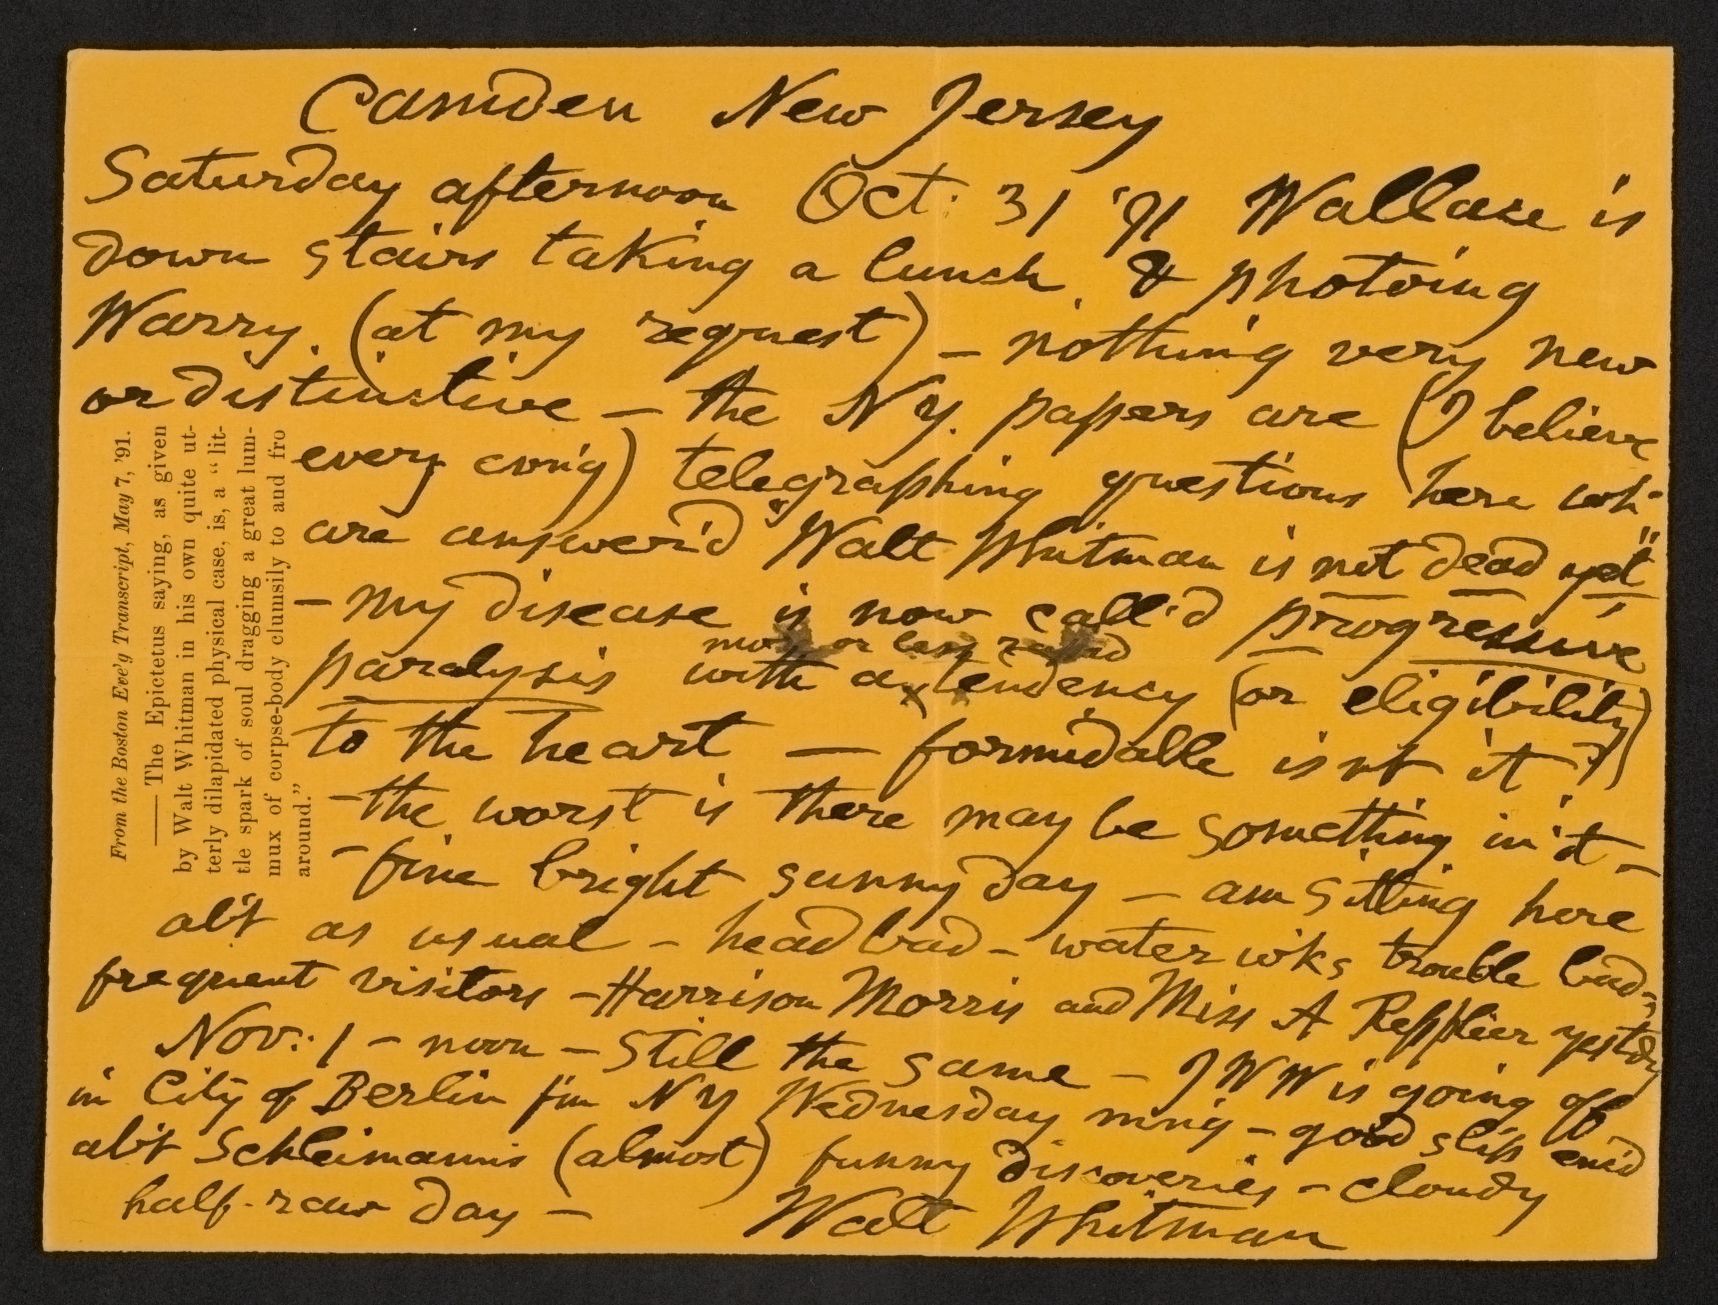 Camden New Jersey
Saturday afternoon Oct: 31 '91 Wallace is
down stairs taking a lunch, & photoing
Warry. (at my request) — nothing very new
or distinctive — the N Y. papers are (I believe
every ev'n'g) telegraphing questions here wh'
are answer'd "Walt Whitman is not dead yet"
— my disease is now call'd progressive
more or less rapid
paralysis with a tendency (or eligibility)
to the heart — formidable isn't it?
— the worst is there may be something in 't —
— fine bright sunny day — am sitting here
ab't as usual — head bad — water w'ks trouble bad —
frequent visitors — Harrison Morris and Miss A Repplier yest'dy
Nov: 1 — noon — Still the same — J W W is going off
in City of Berlin f'm N Y Wednesday m'n'g — good slip enc'd
ab't Schleimann's (almost) funny discoveries — cloudy
half-raw day — Walt Whitman
From the Boston Eve'g Transcript, May 7, '91.
—— The Epictetus saying, as given
by Walt Whitman in his own quite ut-
terly dilapidated physical case, is, a "lit-
tle spark of soul dragging a great lum-
mux of corpse-body clumsily to and fro
around."